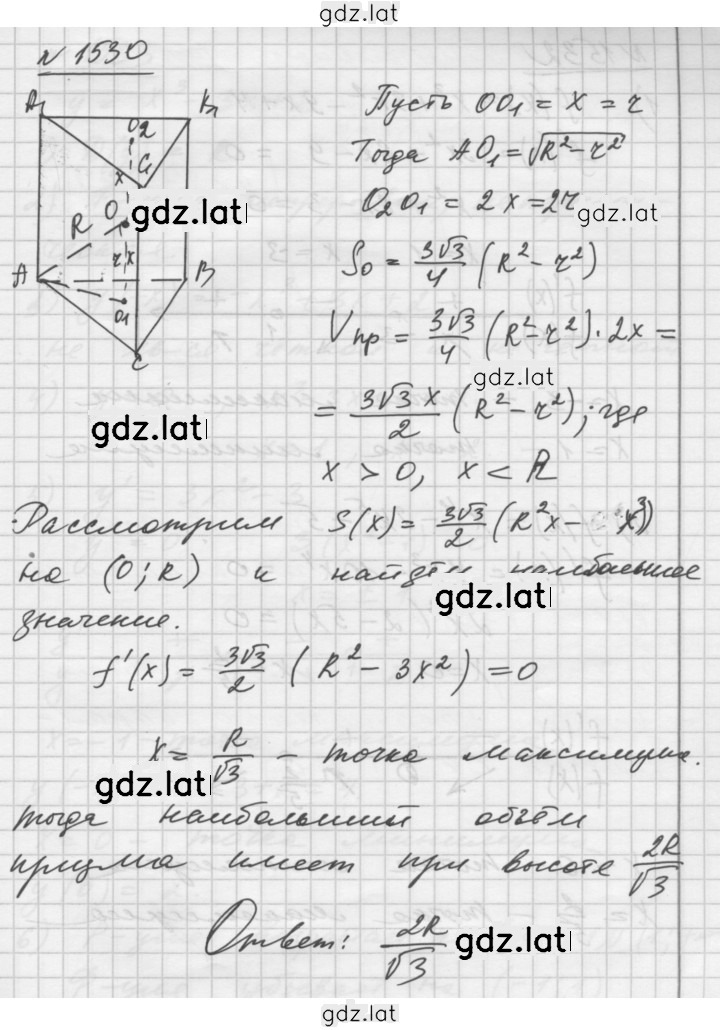 gdz.lat
№ 1530
A₁ O₂ B₁
C₁
x
O
R
r x
A B
O₁
C
Пусть OO₁ = x = r
Тогда AO₁ = √(R² − r²)
O₂O₁ = 2x = 2r
gdz.lat
gdz.lat
S₀ = 3√3/4 (R² − r²)
Vпр = 3√3/4 (R² − r²) · 2x =
gdz.lat
= 3√3 x/2 (R² − r²); где
gdz.lat
x > 0, x < R
Рассмотрим S(x) = 3√3/2 (R²x − x³)
на (0; R) и найдём наибольшее
gdz.lat
значение.
f'(x) = 3√3/2 (R² − 3x²) = 0
x = R/√3 – точка максимума.
gdz.lat
тогда наибольший объём
призма имеет при высоте 2R/√3
Ответ: 2R/√3
gdz.lat
gdz.lat